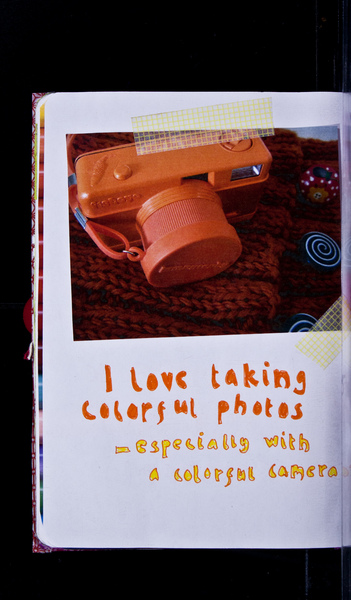 I love taking
colorful photos
– especially with
a colorful camera